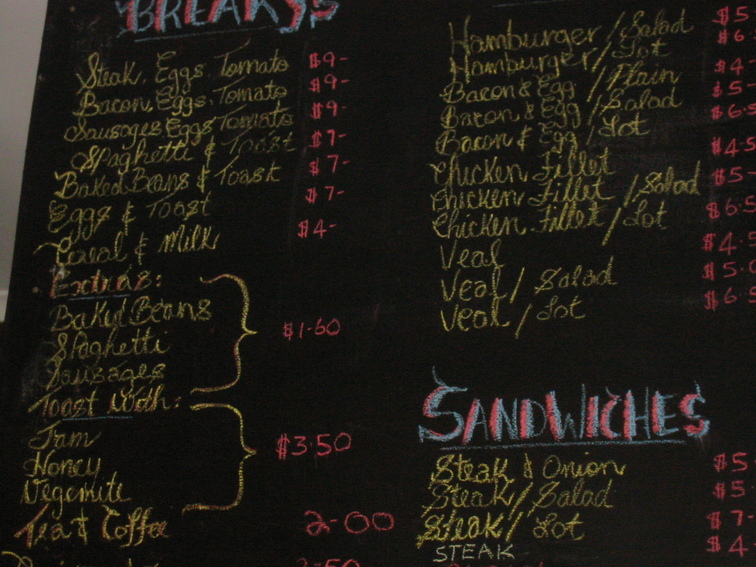 BREAKYS
Steak, Eggs, Tomato $9-
Bacon, Eggs, Tomato $9-
Sausages, Eggs Tomato $9-
Spaghetti & Toast $7-
Baked Beans & Toast $7-
Eggs & Toast $7-
Cereal & Milk $4-
Extras:
Baked Beans
Spaghetti
Sausages
$1-60
Toast With:
Jam
Honey
Vegemite
$3.50
Tea & Coffee 2-00
Hamburger / Salad $5
Hamburger / Lot $6.
Bacon & Egg / Plain $4-
Bacon & Egg / Salad $5-
Bacon & Egg / Lot $6.5
Chicken Fillet $4.5
Chicken Fillet / Salad $5-
Chicken Fillet / Lot $6.5
Veal $4.5
Veal / Salad $5.0
Veal / Lot $6.5
SANDWICHES
Steak & Onion $5.
Steak / Salad $5.
Steak / Lot $7-
STEAK $4-